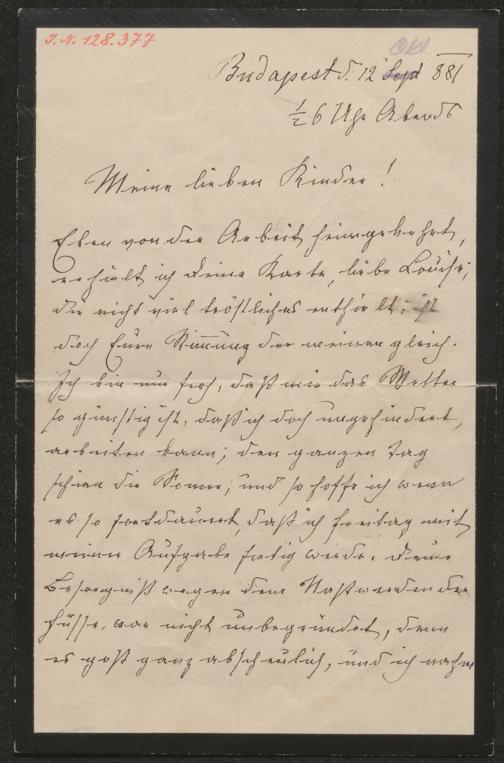 J.N. 128.377
Okt
Budapest d. 12 Sept 881
½ 6 Uhr Abends
Meine lieben Kinder!
Eben von der Arbeit heimgekehrt,
erhielt ich Deine Karte, liebe Louise,
die nicht viel tröstliches enthielt; ist
doch Eure Stimmung der meinen gleich.
Ich bin nur froh, daß mir das Wetter
so günstig ist, daß ich doch ungehindert,
arbeiten kann; den ganzen Tag
schien die Sonne, und so hoffe ich wenn
es so fortdauert, daß ich Freitag mit
meiner Aufgabe fertig werde. Deine
Besorgniß wegen dem Naßwerden der
Füsse, war nicht unbegründet, denn
es goß ganz abscheulich, und ich nahm